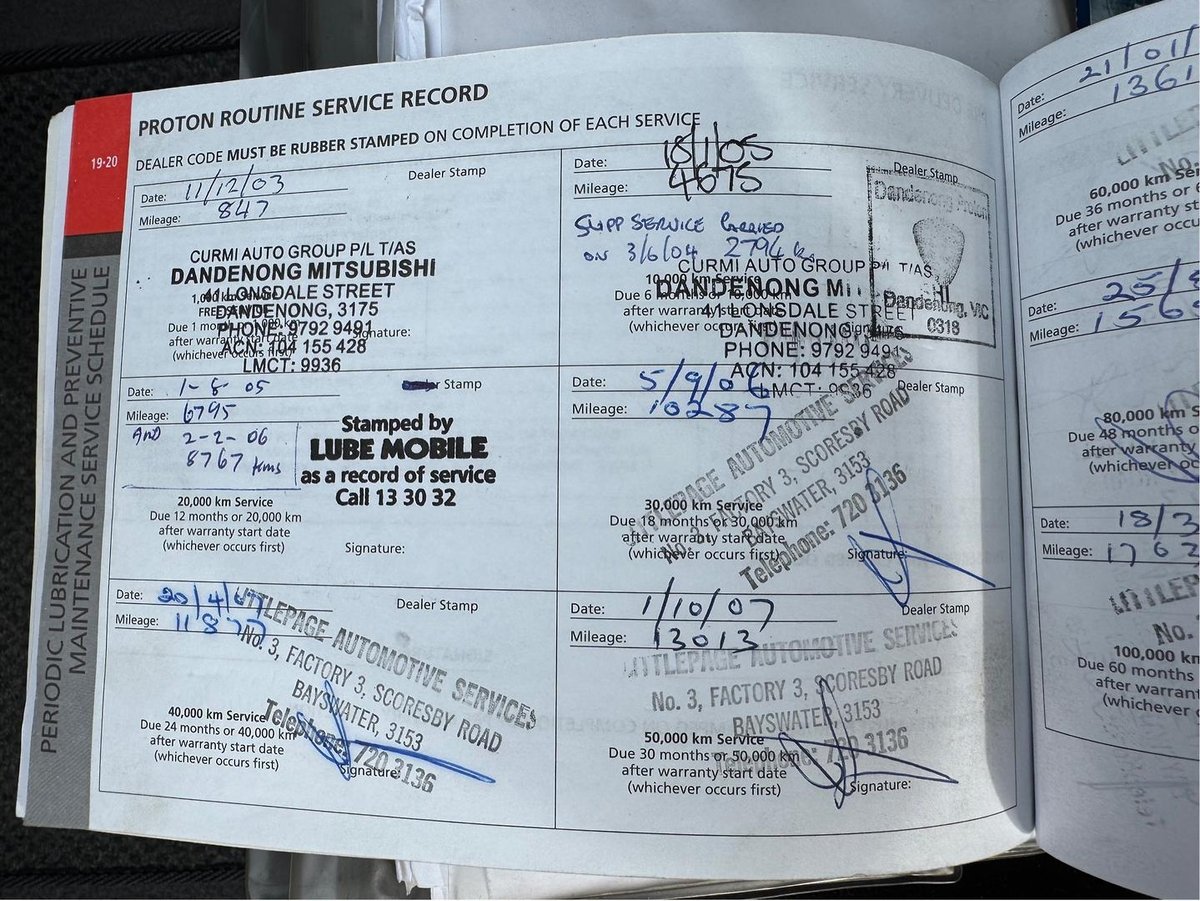 PROTON ROUTINE SERVICE RECORD
DEALER CODE MUST BE RUBBER STAMPED ON COMPLETION OF EACH SERVICE
19-20
PERIODIC LUBRICATION AND PREVENTIVE
MAINTENANCE SERVICE SCHEDULE
Date: 11/12/03
Dealer Stamp
Mileage: 847
CURMI AUTO GROUP P/L T/AS
DANDENONG MITSUBISHI
41 LONSDALE STREET
DANDENONG, 3175
PHONE: 9792 9491
ACN: 104 155 428
LMCT: 9936
1,000 km Service
FREE SERVICE
Due 1 month or 1,000 km
after warranty start date
(whichever occurs first)
Signature:
Date: 18/1/05
Dealer Stamp
Mileage: 4675
Dandenong Proton
Dandenong, VIC
0318
SUPP SERVICE CARRIED
ON 3/6/04 2794 k
CURMI AUTO GROUP P/L T/AS
DANDENONG MI
41 LONSDALE STREET
DANDENONG,
PHONE: 9792 9491
ACN: 104 155 428
LMCT: 9936
10,000 km Service
Due 6 months or 10,000 km
after warranty start date
(whichever occurs first)
Signature:
Date: 1-8-05
Dealer Stamp
Mileage: 6795
AND 2-2-06
8767 kms
Stamped by
LUBE MOBILE
as a record of service
Call 13 30 32
20,000 km Service
Due 12 months or 20,000 km
after warranty start date
(whichever occurs first)
Signature:
Date: 5/9/06
Dealer Stamp
Mileage: 10287
LITTLEPAGE AUTOMOTIVE SERVICES
No. 3, FACTORY 3, SCORESBY ROAD
BAYSWATER, 3153
Telephone: 720 3136
30,000 km Service
Due 18 months or 30,000 km
after warranty start date
(whichever occurs first)
Signature:
Date: 20/4/07
Dealer Stamp
Mileage: 11877
LITTLEPAGE AUTOMOTIVE SERVICES
No. 3, FACTORY 3, SCORESBY ROAD
BAYSWATER, 3153
Telephone: 720 3136
40,000 km Service
Due 24 months or 40,000 km
after warranty start date
(whichever occurs first)
Signature:
Date: 1/10/07
Dealer Stamp
Mileage: 13013
LITTLEPAGE AUTOMOTIVE SERVICES
No. 3, FACTORY 3, SCORESBY ROAD
BAYSWATER, 3153
Telephone: 720 3136
50,000 km Service
Due 30 months or 50,000 km
after warranty start date
(whichever occurs first)
Signature:
Date: 21/01/
Mileage: 1361
LITTLE
No.
60,000 km Ser
Due 36 months or
after warranty st
(whichever occu
Date: 25/
Mileage: 156
80,000 km S
Due 48 months o
after warranty
(whichever oc
Date: 18/3
Mileage: 1762
LITTLE
No.
100,000 km
Due 60 months
after warran
(whichever